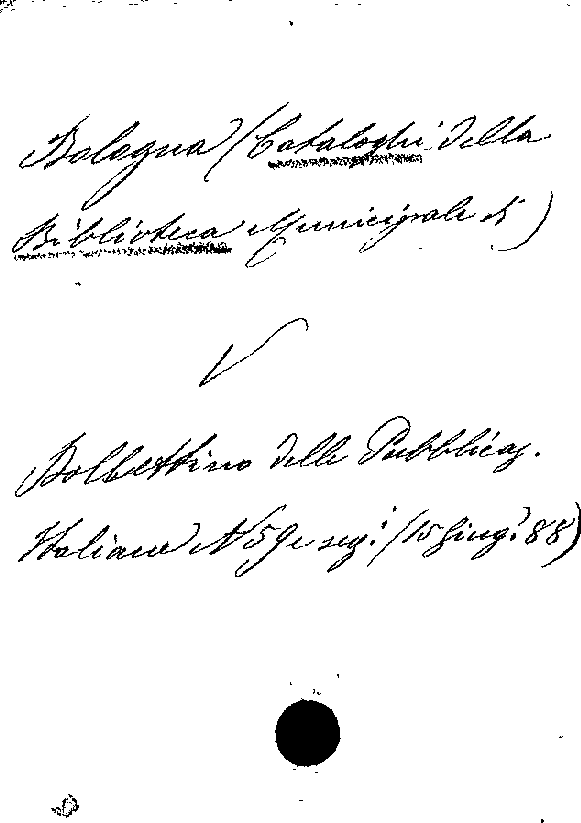 Bologna (Cataloghi della
Biblioteca Municipale di)
V
Bollettino delle Pubblicaz.
Italiane N 59 e seg.i (15 Giug.o 88)